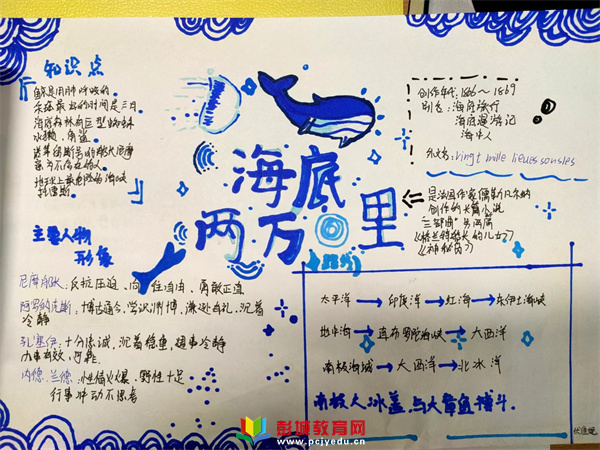 知识点
鲸是用肺呼吸的
海底森林有巨型蜘蛛
地球上最危险的海峡
托里斯
创作年代: 1866～1869
别名: 海底旅行
海底漫游记
海中人
外文名: Vingt mille lieues sonsles
海底
两万里
是法国作家儒勒凡尔纳
创作的长篇小说
三部曲
《格兰特船长的儿女》
《神秘岛》
主要人物
形象
尼摩船长: 反抗压迫, 自由, 勇敢正直
阿罗纳克斯: 博古通今, 学识渊博, 谦逊有礼, 沉着
冷静
孔塞伊: 十分忠诚, 沉着稳重, 遇事冷静
内德.兰德: 性情火爆, 野性十足
行事冲动不思考
路线
太平洋→印度洋→红海→
地中海→直布罗陀海峡→大西洋
南极海域→大西洋→北冰洋
南极人冰盖与大章鱼搏斗.
彭城教育网
www.pcjyedu.cn